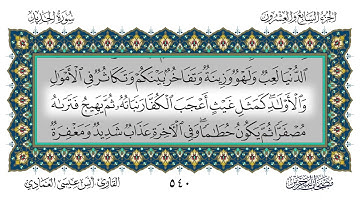 الجزء السابع والعشرون
سورة الحديد
الدُّنْيَا لَعِبٌ وَلَهْوٌ وَزِينَةٌ وَتَفَاخُرٌ بَيْنَكُمْ وَتَكَاثُرٌ فِي الْأَمْوَٰلِ
وَالْأَوْلَٰدِ كَمَثَلِ غَيْثٍ أَعْجَبَ الْكُفَّارَ نَبَاتُهُ ثُمَّ يَهِيجُ فَتَرَىٰهُ
مُصْفَرًّا ثُمَّ يَكُونُ حُطَٰمًا وَفِي الْآخِرَةِ عَذَابٌ شَدِيدٌ وَمَغْفِرَةٌ
٥٤٠